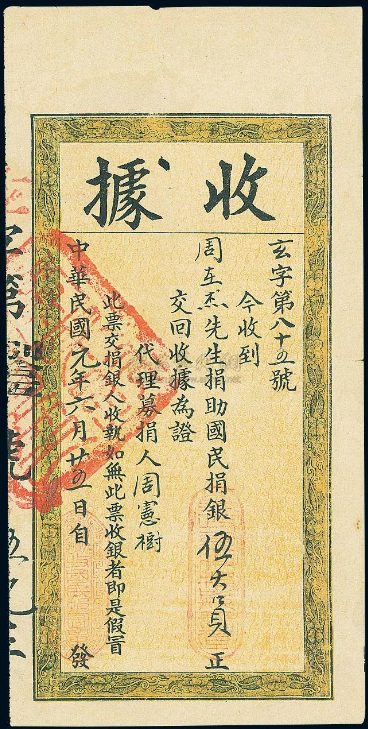 收據
玄字第八十五號
今收到
周在杰先生捐助國民捐銀伍大員正
交回收據為證
代理募捐人周憲樹
此票交捐銀人收執如無此票收銀者即是假冒
中華民國元年六月廿五日自發